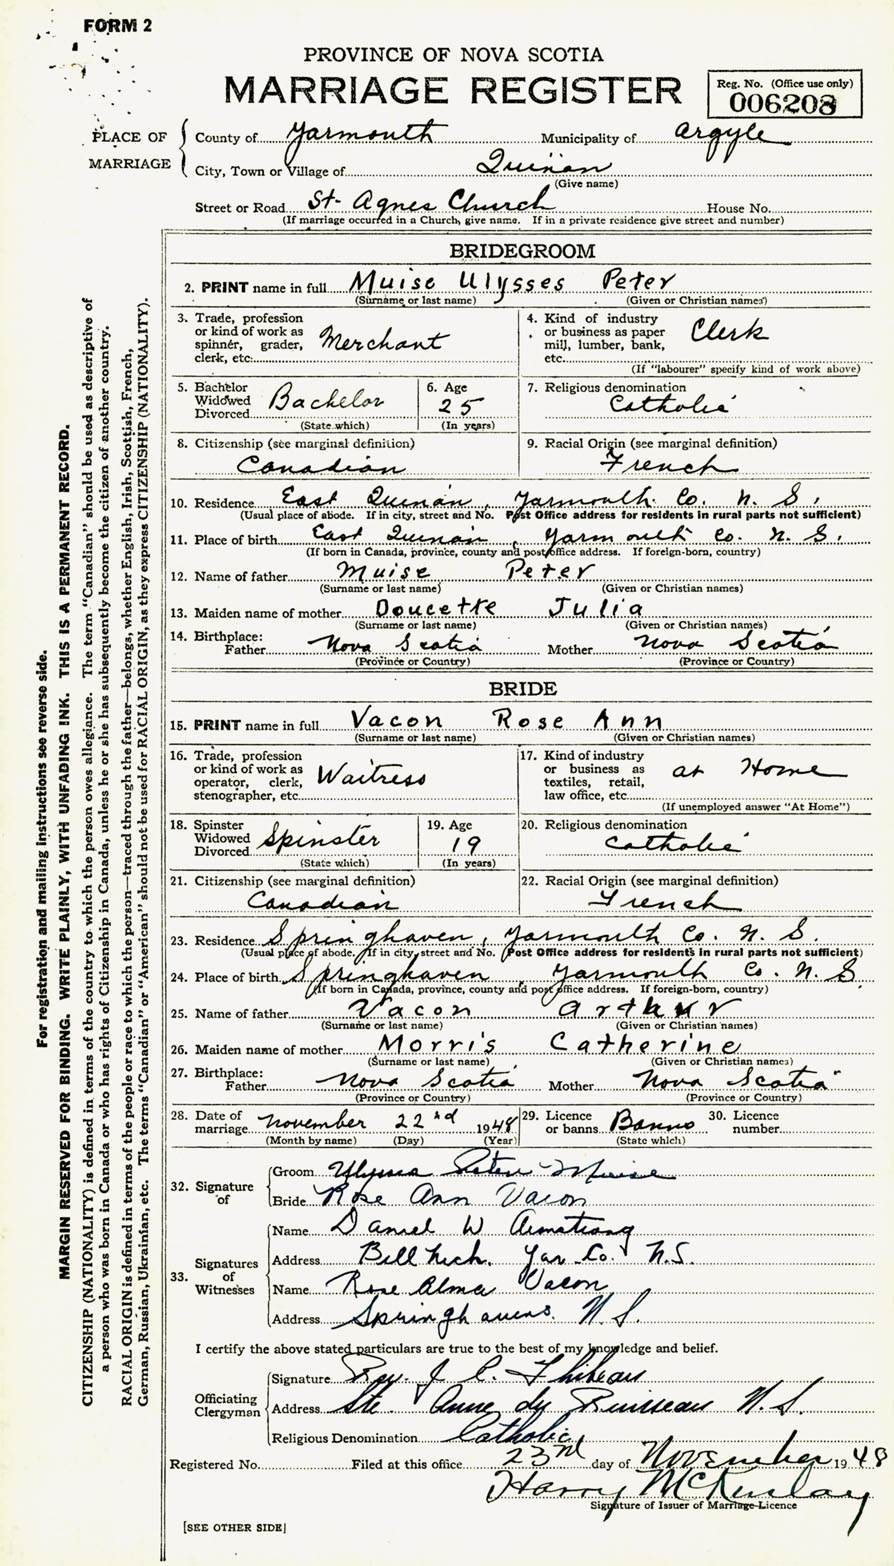 FORM 2
PROVINCE OF NOVA SCOTIA
MARRIAGE REGISTER
Reg. No. (Office use only)
006208
PLACE OF MARRIAGE
County of Yarmouth Municipality of Argyle
City, Town or Village of Quinan
(Give name)
Street or Road St- Agnes Church House No.
(If marriage occurred in a Church, give name. If in a private residence give street and number)
BRIDEGROOM
2. PRINT name in full Muise Ulysses Peter
(Surname or last name) (Given or Christian names)
3. Trade, profession or kind of work as spinner, grader, clerk, etc. Merchant
4. Kind of industry or business as paper mill, lumber, bank, etc. Clerk
(If "labourer" specify kind of work above)
5. Bachelor Widowed Divorced Bachelor
(State which)
6. Age 25
(In years)
7. Religious denomination Catholic
8. Citizenship (see marginal definition) Canadian
9. Racial Origin (see marginal definition) French
10. Residence East Quinan, Yarmouth Co. N. S.
(Usual place of abode. If in city, street and No. Post Office address for residents in rural parts not sufficient)
11. Place of birth East Quinan, Yarmouth Co. N. S.
(If born in Canada, province, county and post office address. If foreign-born, country)
12. Name of father Muise Peter
(Surname or last name) (Given or Christian names)
13. Maiden name of mother Doucette Julia
(Surname or last name) (Given or Christian names)
14. Birthplace: Father Nova Scotia Mother Nova Scotia
(Province or Country) (Province or Country)
BRIDE
15. PRINT name in full Vacon Rose Ann
(Surname or last name) (Given or Christian names)
16. Trade, profession or kind of work as operator, clerk, stenographer, etc. Waitress
17. Kind of industry or business as textiles, retail, law office, etc. at Home
(If unemployed answer "At Home")
18. Spinster Widowed Divorced Spinster
(State which)
19. Age 19
(In years)
20. Religious denomination Catholic
21. Citizenship (see marginal definition) Canadian
22. Racial Origin (see marginal definition) French
23. Residence Springhaven, Yarmouth Co. N. S.
(Usual place of abode. If in city, street and No. Post Office address for residents in rural parts not sufficient)
24. Place of birth Springhaven, Yarmouth Co. N. S.
(If born in Canada, province, county and post office address. If foreign-born, country)
25. Name of father Vacon Arthur
(Surname or last name) (Given or Christian names)
26. Maiden name of mother Morris Catherine
(Surname or last name) (Given or Christian names)
27. Birthplace: Father Nova Scotia Mother Nova Scotia
(Province or Country) (Province or Country)
28. Date of marriage November 22nd 1948
(Month by name) (Day) (Year)
29. Licence or banns Banns
(State which)
30. Licence number
32. Signature of
Groom Ulysses Peter Muise
Bride Rose Ann Vacon
33. Signatures of Witnesses
Name Daniel W Armstrong
Address Bell Neck. Yar. Co. N.S.
Name Rose Alma Vacon
Address Springhaven. N. S.
I certify the above stated particulars are true to the best of my knowledge and belief.
Officiating Clergyman
Signature Rev. J. C. Thibeau
Address Ste Anne du Ruisseau N. S.
Religious Denomination Catholic
Registered No. Filed at this office 23nd day of November 1948
Harry McKinlay
Signature of Issuer of Marriage Licence
[SEE OTHER SIDE]
For registration and mailing instructions see reverse side.
MARGIN RESERVED FOR BINDING. WRITE PLAINLY, WITH UNFADING INK. THIS IS A PERMANENT RECORD.
CITIZENSHIP (NATIONALITY) is defined in terms of the country to which the person owes allegiance. The term "Canadian" should be used as descriptive of
a person who was born in Canada or who has rights of Citizenship in Canada, unless he or she has subsequently become the citizen of another country.
RACIAL ORIGIN is defined in terms of the people or race to which the person—traced through the father—belongs, whether English, Irish, Scottish, French,
German, Russian, Ukrainian, etc. The terms "Canadian" or "American" should not be used for RACIAL ORIGIN, as they express CITIZENSHIP (NATIONALITY).